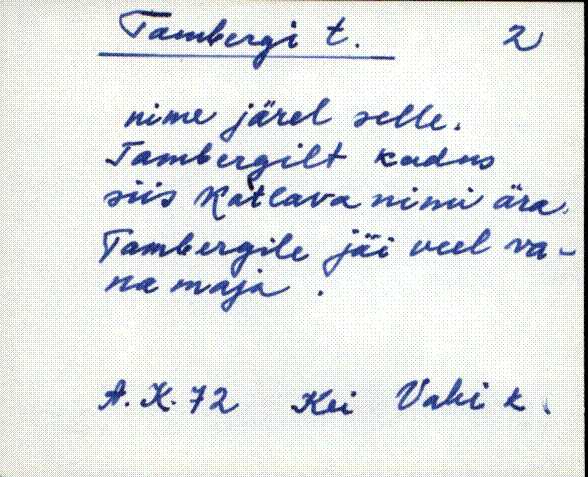 Tambergi t. 2
nime järel selle.
Tambergilt kadus
siis Katlava nimi ära.
Tambergile jäi veel va-
na maja.
A. K. 72 Kei Vahi k.